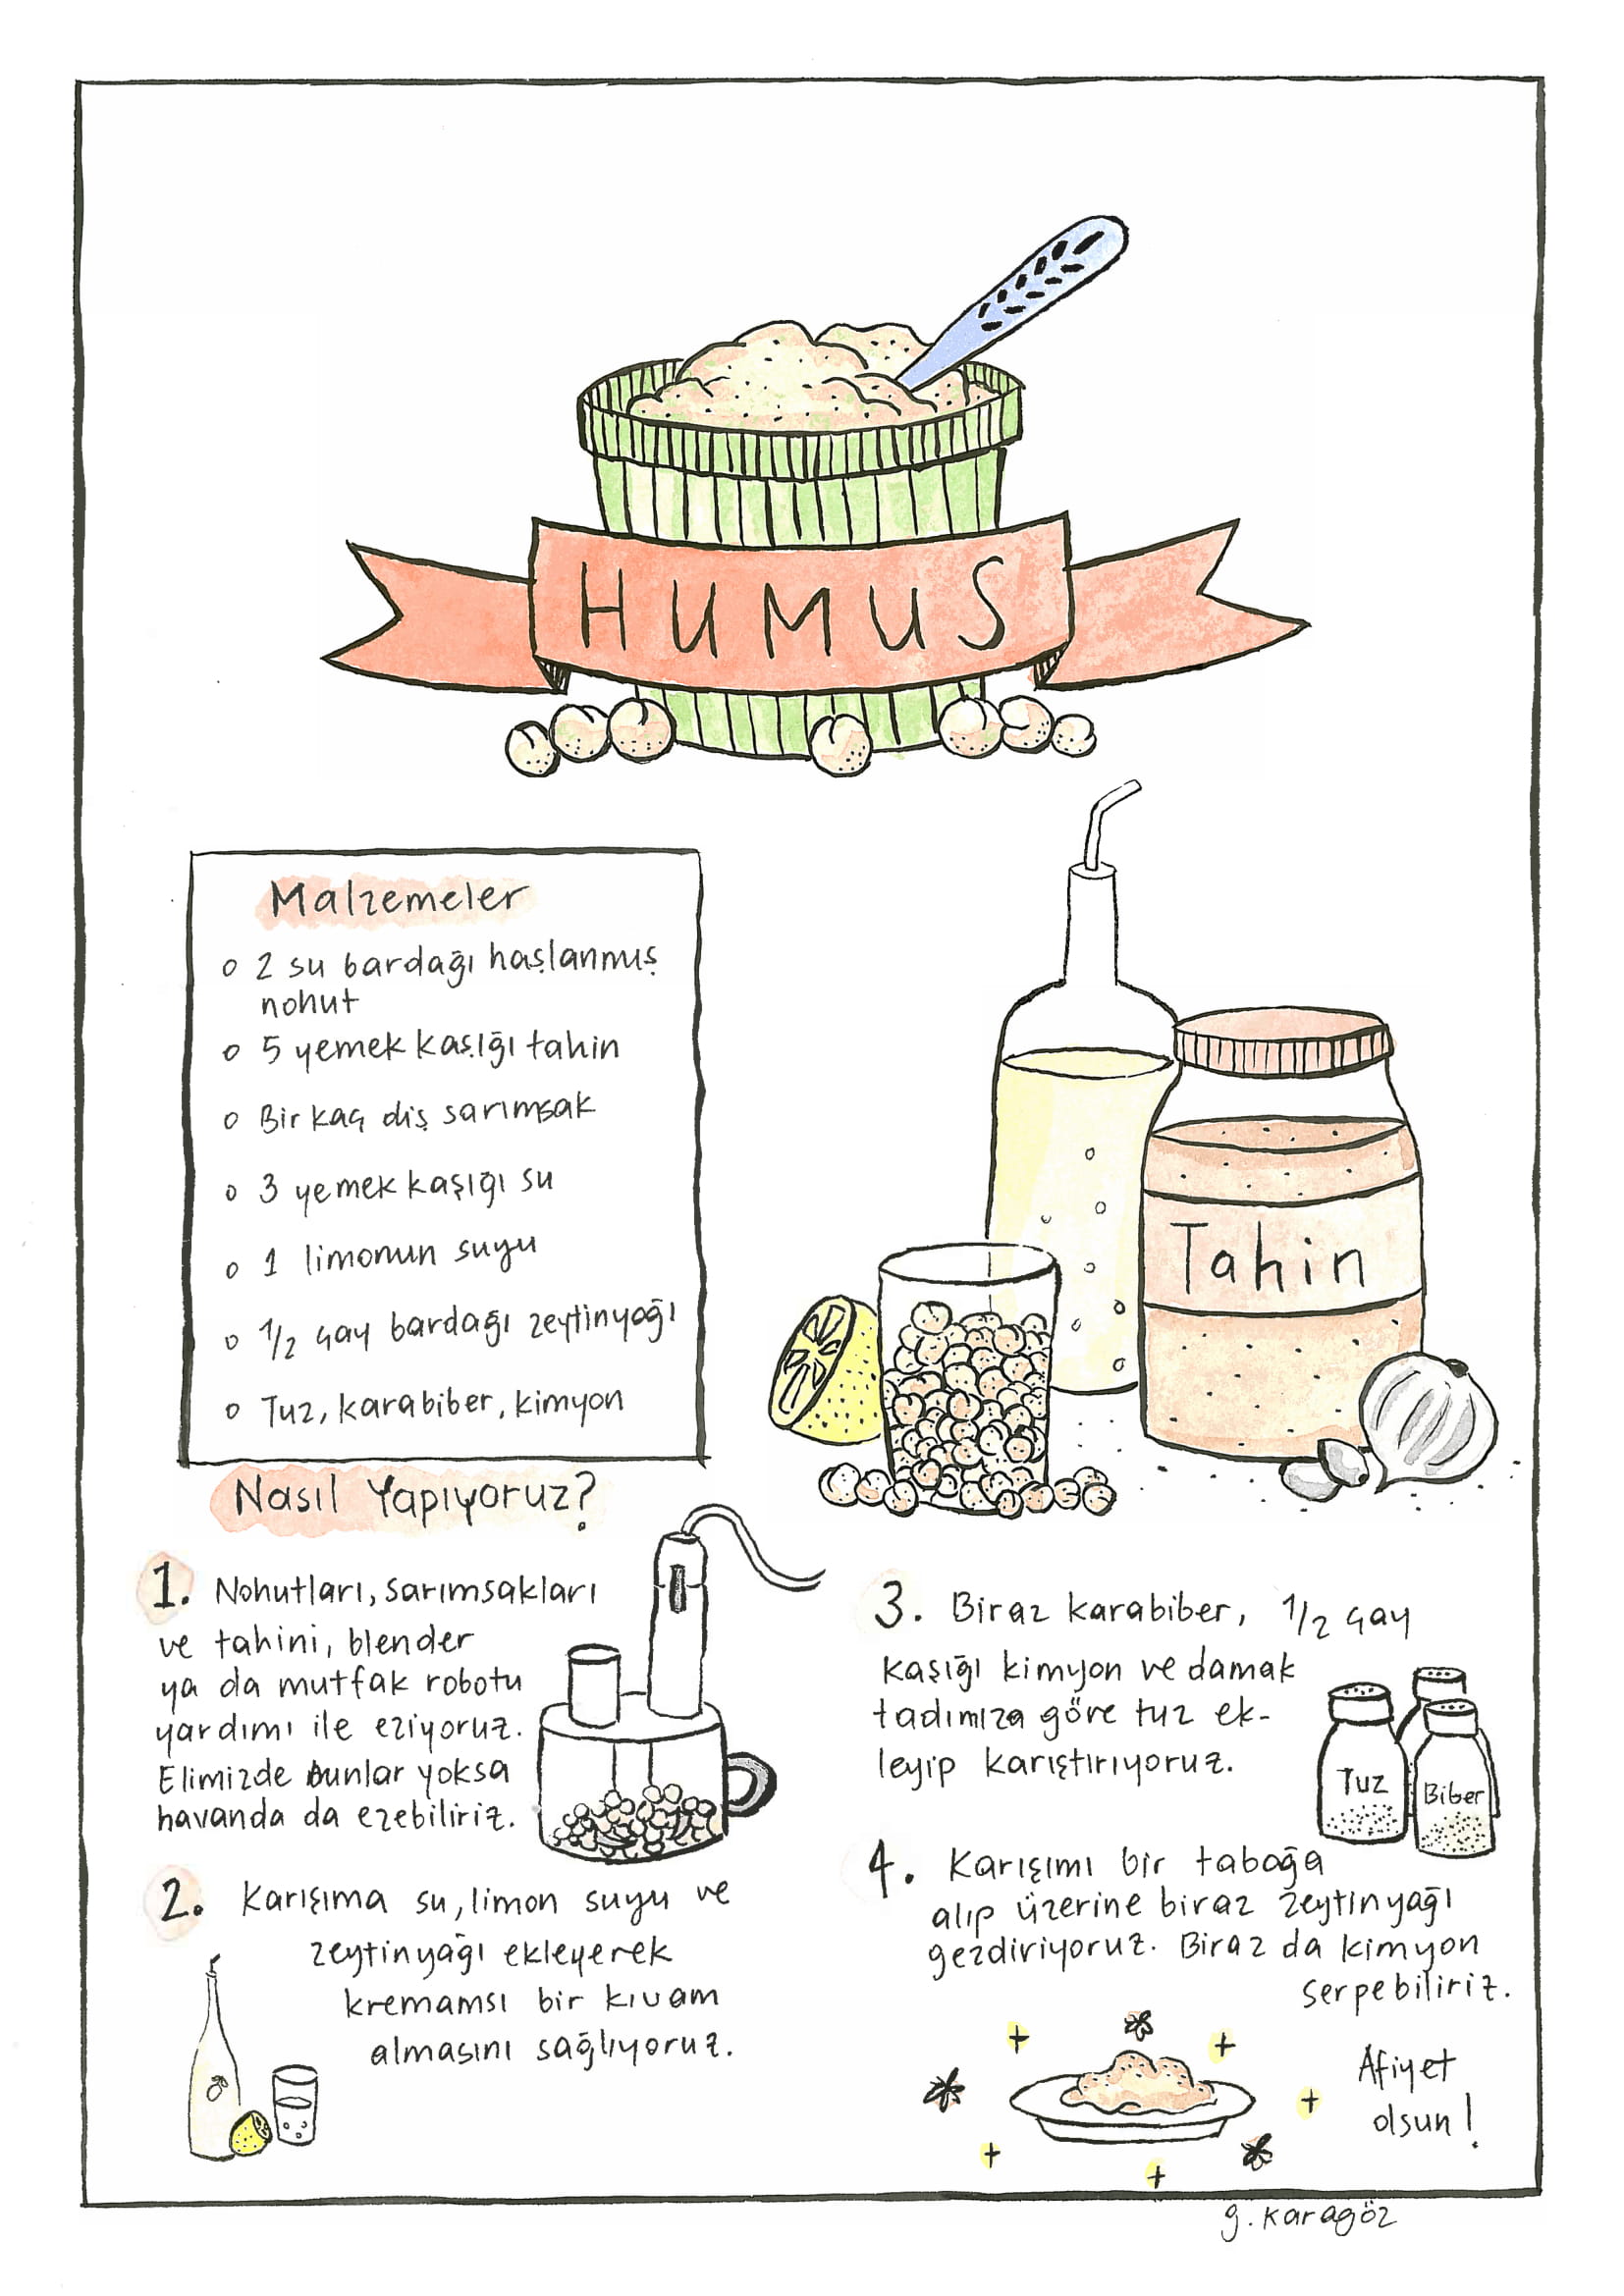 HUMUS
Malzemeler
o 2 su bardağı haşlanmış
nohut
o 5 yemek kaşığı tahin
o Bir kaç diş sarımsak
o 3 yemek kaşığı su
o 1 limonun suyu
o 1/2 çay bardağı zeytinyağı
o Tuz, karabiber, kimyon
Tahin
Nasıl Yapıyoruz?
1. Nohutları, sarımsakları
ve tahini, blender
ya da mutfak robotu
yardımı ile eziyoruz.
Elimizde bunlar yoksa
havanda da ezebiliriz.
2. Karışıma su, limon suyu ve
zeytinyağı ekleyerek
kremamsı bir kıvam
almasını sağlıyoruz.
3. Biraz karabiber, 1/2 çay
kaşığı kimyon ve damak
tadımıza göre tuz ek-
leyip karıştırıyoruz.
Tuz
Biber
4. Karışımı bir tabağa
alıp üzerine biraz zeytinyağı
gezdiriyoruz. Biraz da kimyon
serpebiliriz.
Afiyet
olsun!
g. karagöz